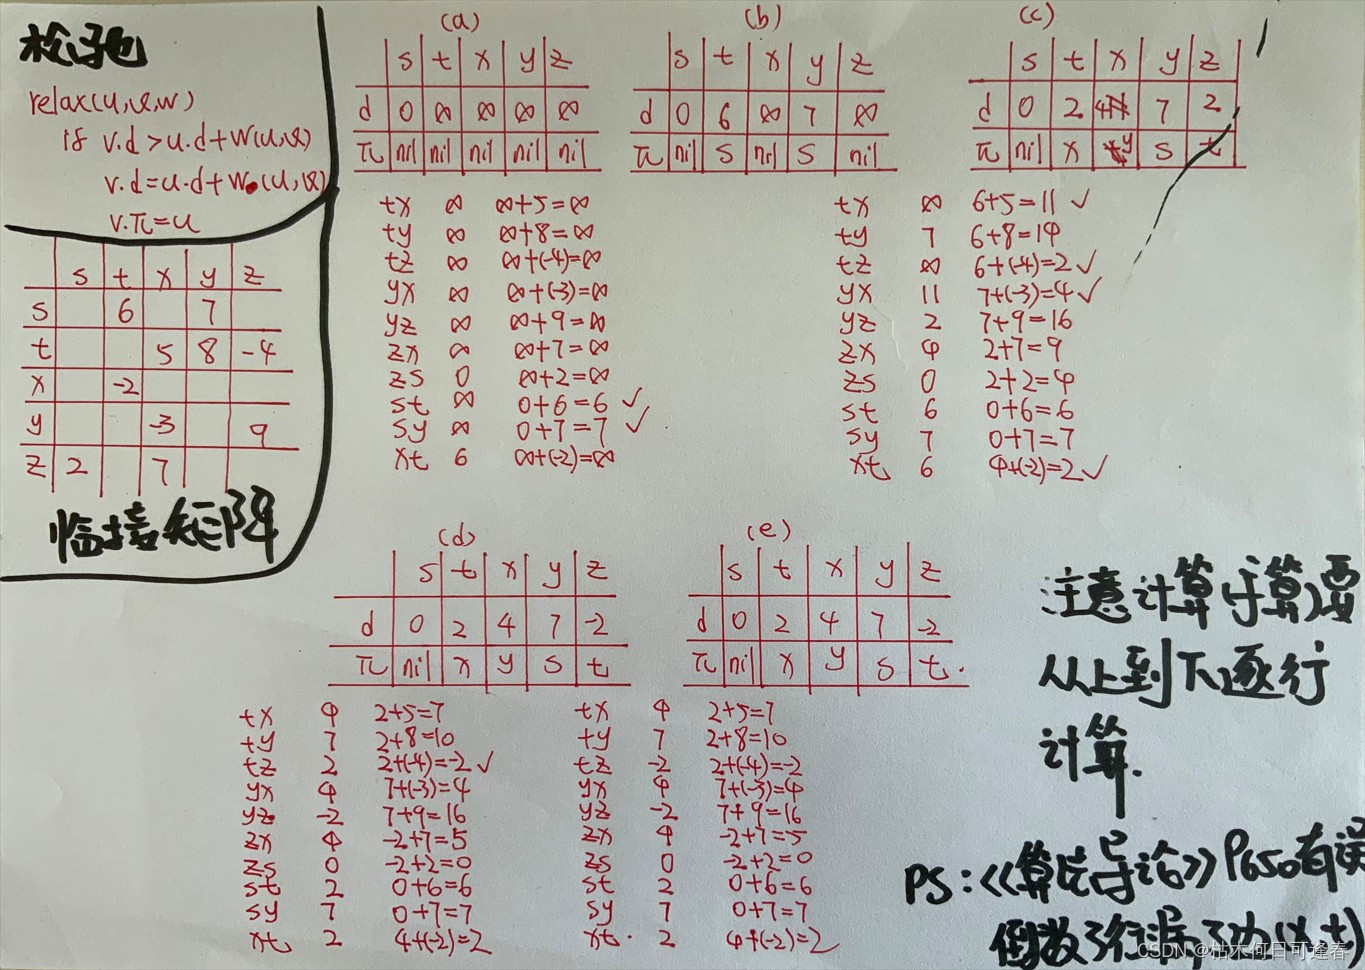 松弛
relax(u,v,w)
if v.d > u.d + w(u,v)
v.d = u.d + w(u,v)
v.π = u
s t x y z
s 6 7
t 5 8 -4
x -2
y -3 9
z 2 7
临接矩阵
(a)
s t x y z
d 0 ∞ ∞ ∞ ∞
π nil nil nil nil nil
tx ∞ ∞+5=∞
ty ∞ ∞+8=∞
tz ∞ ∞+(-4)=∞
yx ∞ ∞+(-3)=∞
yz ∞ ∞+9=∞
zx ∞ ∞+7=∞
zs 0 ∞+2=∞
st ∞ 0+6=6 ✓
sy ∞ 0+7=7 ✓
xt 6 ∞+(-2)=∞
(b)
s t x y z
d 0 6 ∞ 7 ∞
π nil s nil s nil
tx ∞ 6+5=11 ✓
ty 7 6+8=14
tz ∞ 6+(-4)=2 ✓
yx 11 7+(-3)=4 ✓
yz 2 7+9=16
zx 4 2+7=9
zs 0 2+2=4
st 6 0+6=6
sy 7 0+7=7
xt 6 4+(-2)=2 ✓
(c)
s t x y z
d 0 2 4 7 2
π nil x y s t
(d)
s t x y z
d 0 2 4 7 -2
π nil x y s t
tx 4 2+5=7
ty 7 2+8=10
tz 2 2+(-4)=-2 ✓
yx 4 7+(-3)=4
yz -2 7+9=16
zx 4 -2+7=5
zs 0 -2+2=0
st 2 0+6=6
sy 7 0+7=7
xt 2 4+(-2)=2
(e)
s t x y z
d 0 2 4 7 -2
π nil x y s t.
tx 4 2+5=7
ty 7 2+8=10
tz -2 2+(-4)=-2
yx 4 7+(-3)=4
yz -2 7+9=16
zx 4 -2+7=5
zs 0 -2+2=0
st 2 0+6=6
sy 7 0+7=7
xt. 2 4+(-2)=2
注意计算(手算)要
从上到下逐行
计算.
PS:《算法导论》P650有误
倒数3行漏了边(x,t)
CSDN @枯木何日可逢春